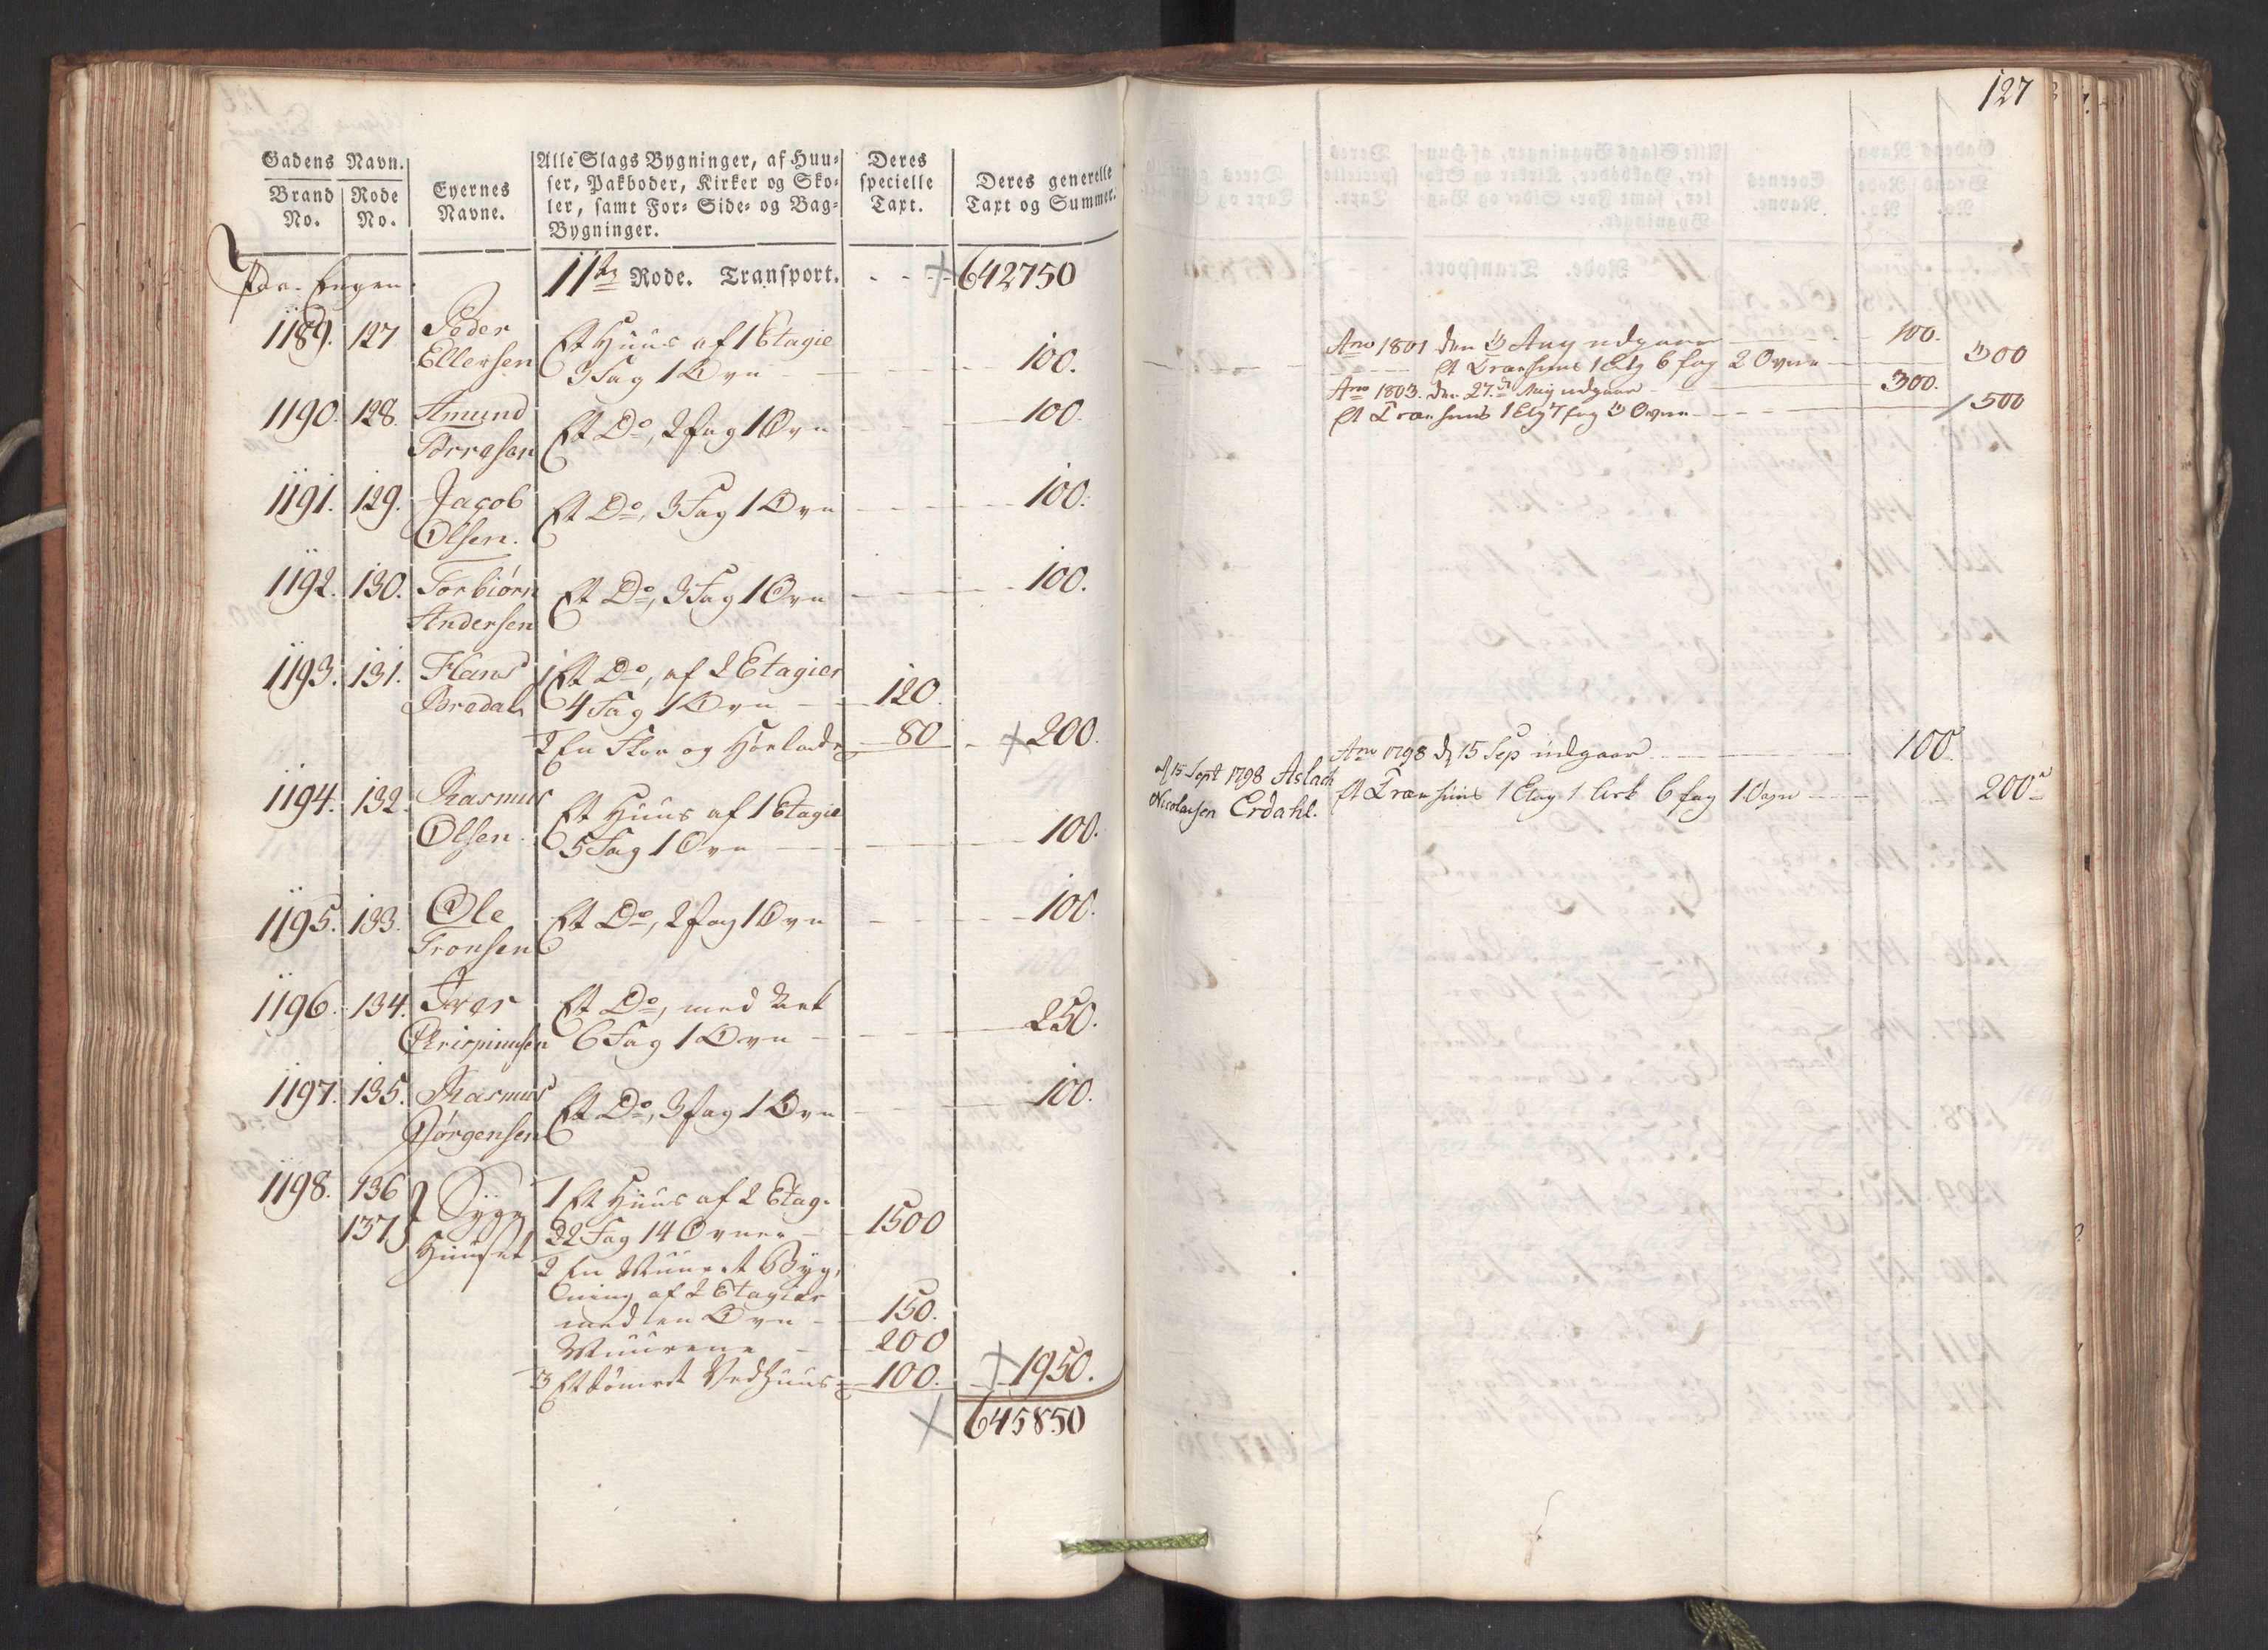 Gadens Navn.
Brand No.
Rode No.
Eyernes Navne.
Alle Slags Bygninger, af Huu-
ser, Pakboder, Kirker og Sko-
ler, samt For- Side- og Bag-
Bygninger.
Deres
specielle
Taxt.
Deres generelle
Taxt og Summer.
Paa Engen. 11te Rode. Transport. 642750
1189. 127 Peder Et Huus af 1 Etagie
Ellersen 3 Fag 1 Ovn 100.
1190. 128. Amund 100.
Et Do, 2 fag 1 Ovn
1191. 129. Jacob Et Do, 3 Fag 1 Ovn 100.
Olsen.
1192. 130. Torbiørn Et Do, 3 Fag 1 Ovn 100.
Andersen
1193. 131. Hans 1 Et Do, af 2 Etagier
Bredal 4 Fag 1 Ovn 120.
2 En Flor og Høelade 80 200.
1194. 132. Rasmus Et Huus af 1 Etagie
Olsen. 5 Fag 1 Ovn 100.
1195. 133. Ole Et Do, 2 fag 1 Ovn 100.
Tronsen
1196. 134. Iver Et Do, med Ark
Chrispinusen 6 Fag 1 Ovn 250.
1197. 135. Rasmus Et Do, 3 fag 1 Ovn 100.
Jørgensen
1198. 136 Syge 1 Et Huus af 2 Etag.
137 Huuset 22 Fag 14 Ovner 1500
2 En Muuret Byg-
ning af 2 Etagier
med en Ovn 150.
Muurene 200
3 Et tømret Vedhuus 100. 1950.
645850
127
Ano 1801 den 3 Aug udgaar 100.
Et Træehuus 1 Etg 6 fag 2 Ovne 300
Ano 1803. den 27. Aug udgaar 300.
Et Træehuus 1 Etg 7 fag 3 Ovne 500
Ano 1798 d 15 Sep udgaar 100.
d 15 Sept 1798 Aslach
Nicolaysen Erdahl. Et Træehuus 1 Etag 1 Ark 6 fag 1 Ovn 200